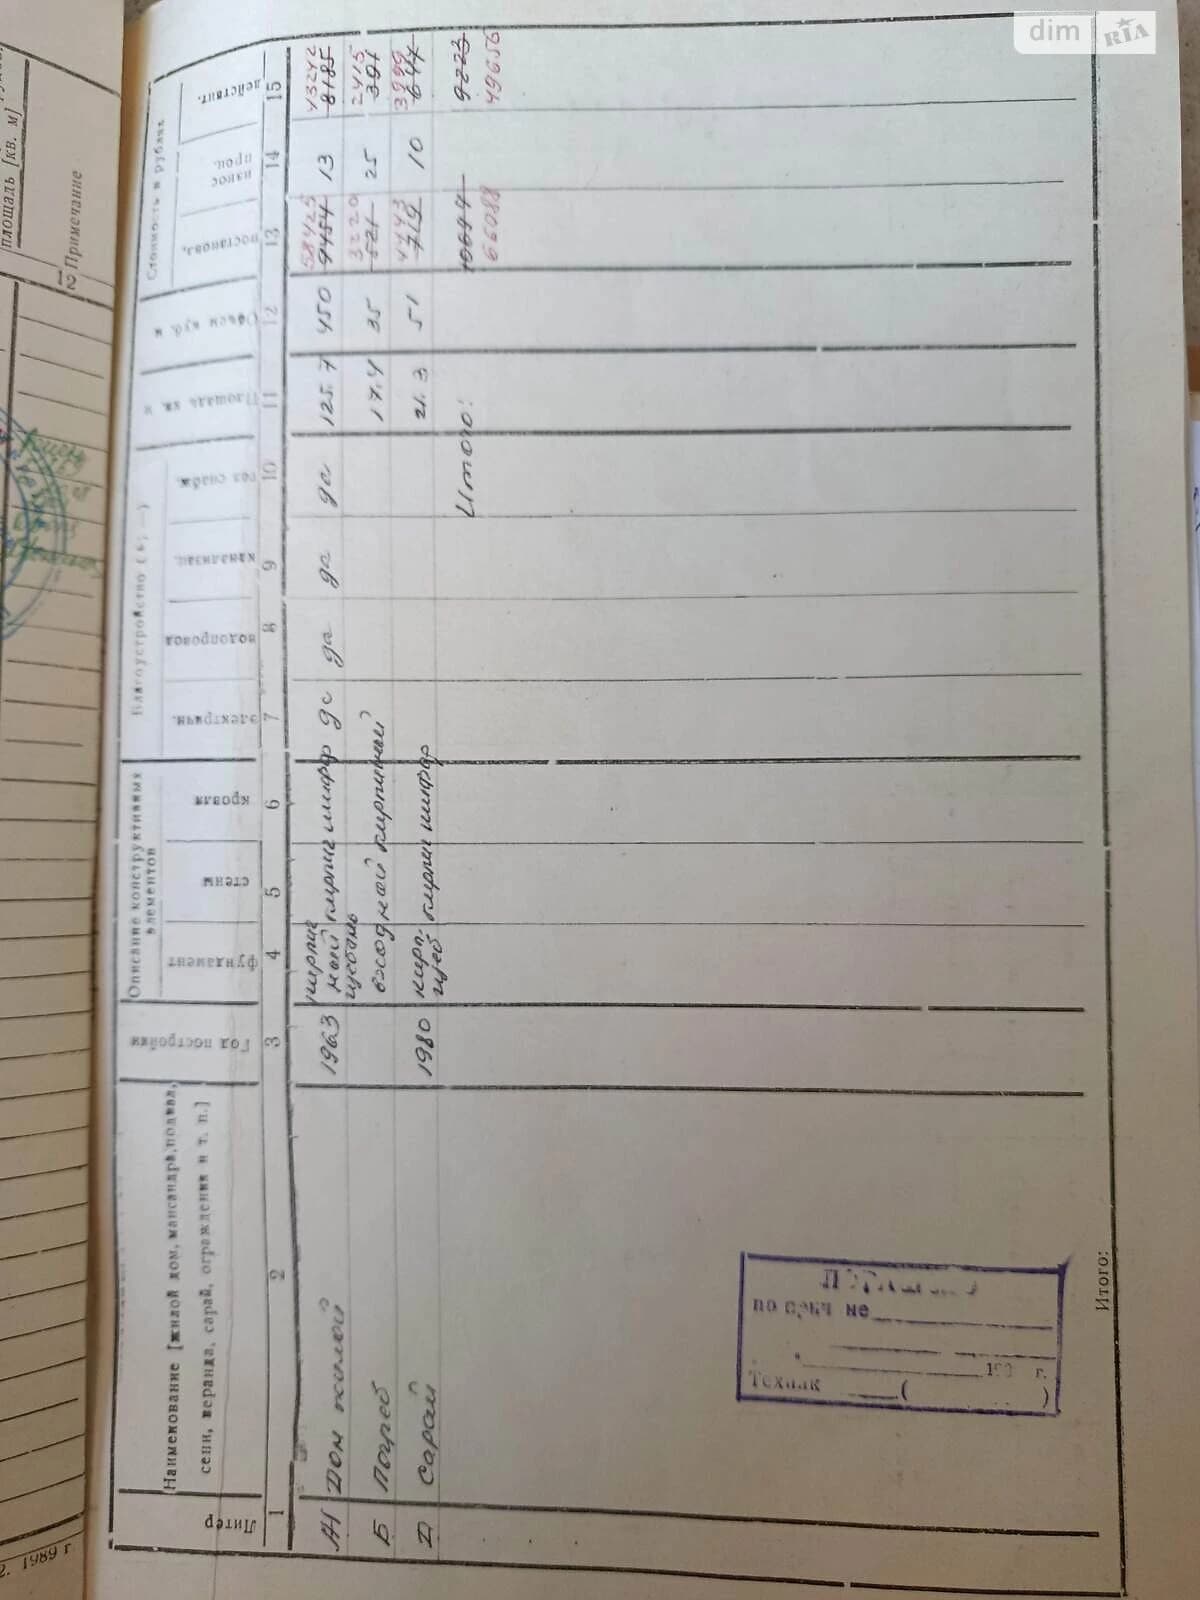 dim RIA
площадь [кв. м]
12 Примечание
2. 1989 г
Литер
Наименование [жилой дом, мансандра, подвал,
сени, веранда, сарай, ограждения и т. п.]
Год постройки
Описание конструктивных
элементов
фундамент
стены
кровля
Благоустройство (+; —)
электричн.
водопровод
канализац.
газ снабж.
Площадь кв. м
Объем куб. м
Стоимость в рублях
востанов.
износ
проц.
действит.
1 2 3 4 5 6 7 8 9 10 11 12 13 14 15
Ж Дом жилой 1963 кирпич шифер да да да да 125.7 450 58425 9454 13 43242 8185
щебень
Б Погреб входной кирпичный 17.4 35 3220 521 25 2415 391
Д Сарай 1980 кирп. щеб кирпич шифер 21.3 51 4443 719 10 3999 647
Итого: 10694 9223
66088 49656
по
не
19 г.
Техник ( )
Итого: